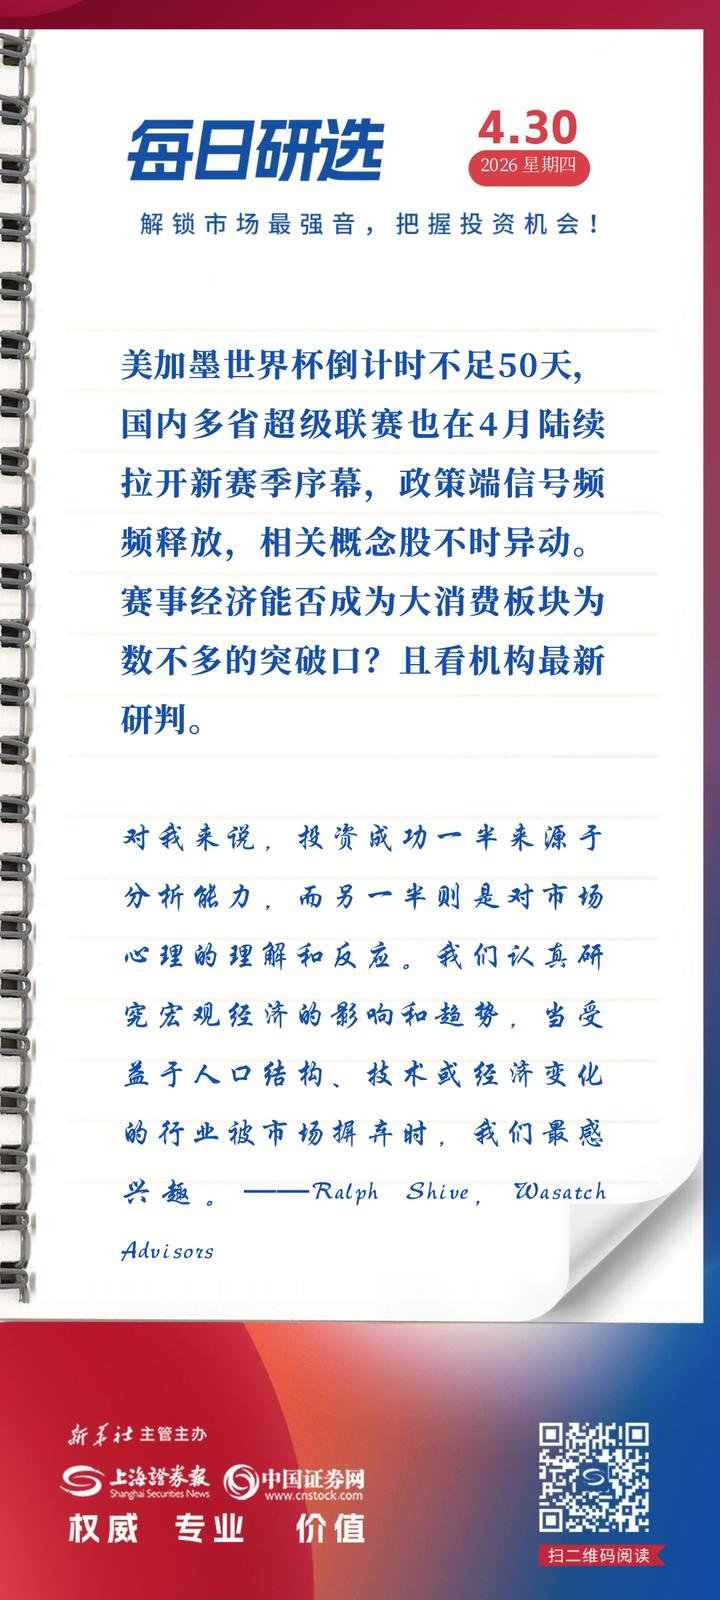 每日研选
4.30
2026 星期四
解锁市场最强音，把握投资机会！
美加墨世界杯倒计时不足50天，
国内多省超级联赛也在4月陆续
拉开新赛季序幕，政策端信号频
频释放，相关概念股不时异动。
赛事经济能否成为大消费板块为
数不多的突破口？且看机构最新
研判。
对我来说，投资成功一半来源于
分析能力，而另一半则是对市场
心理的理解和反应。我们认真研
究宏观经济的影响和趋势，当受
益于人口结构、技术或经济变化
的行业被市场摒弃时，我们最感
兴趣。——Ralph Shive，Wasatch
Advisors
新华社 主管主办
上海證券報
Shanghai Securities News
中国证券网
www.cnstock.com
权威 专业 价值
扫二维码阅读